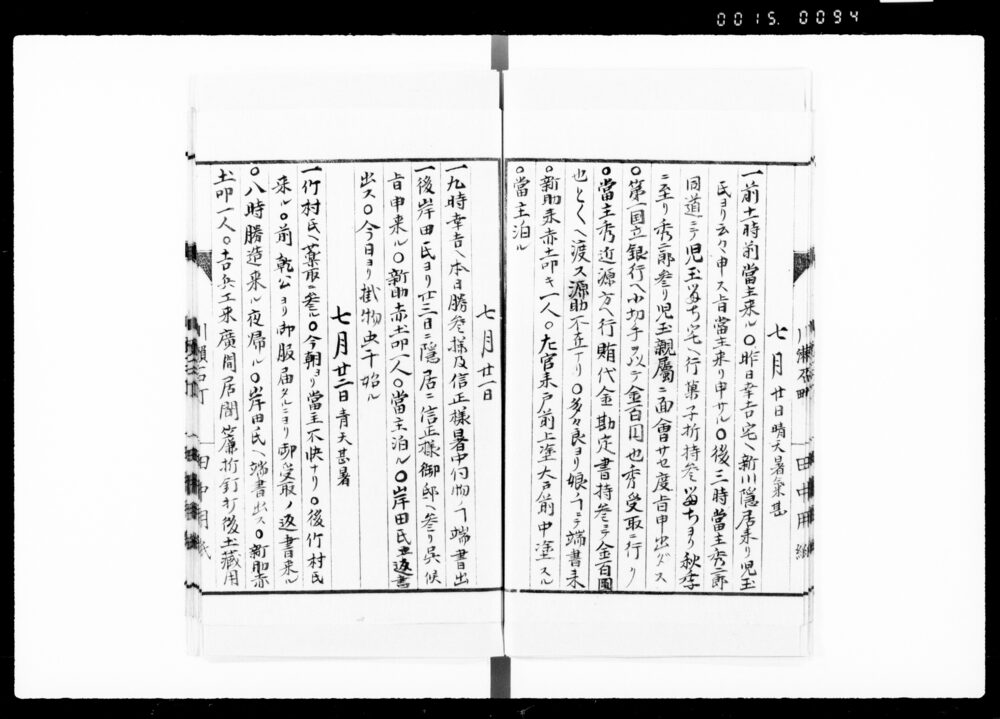 0015.0094
七月廿日晴天暑氣甚
一前十時前當主来ル〇昨日幸吉宅ヘ新川隠居来リ児玉
氏ヨリ云々申ス旨當主来リ申サル〇後三時當主秀二郎
同道ニテ児玉 宅ヘ行菓子折持参 ヨリ秋季
ニ至リ秀二郎参リ児玉親屬ニ面會サセ度旨申出ダス
〇第一国立銀行ヘ小切手ヲ以テ金百円也秀受取ニ行リ
〇當主秀近源方ヘ行賄代金勘定書持参ニテ金百圓
也とくヘ渡ス源助不立アリ〇多々良ヨリ娘ノ ニテ端書来
〇新助来赤土叩キ一人〇左官来戸前上塗大戸前中塗スル
〇當主泊ル
七月廿一日
一九時幸吉ヘ本日勝 様及信正様暑中伺 端書出
一後岸田氏ヨリ廿三日ニ隠居ニ信正様御邸ヘ参リ呉候
旨申来ル〇新助赤土叩一人〇當主泊ル〇岸田氏 返書
出ス〇今日ヨリ掛物虫干始ル
七月廿二日青天甚暑
一竹村氏ヘ薬取ニ参〇今朝ヨリ當主不快ナリ〇後竹村氏
来ル〇前乾公ヨリ御服届タルニヨリ御受取ノ返書来ル
〇八時勝造来ル夜帰ル〇岸田氏ヘ端書出ス〇新助赤
土叩一人〇吉兵工来廣間居間簾折釘打後土蔵用
川瀬石町
田中用紙